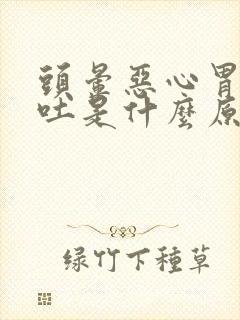 頭暈惡心胃
吐是什麼原
绿竹下種草